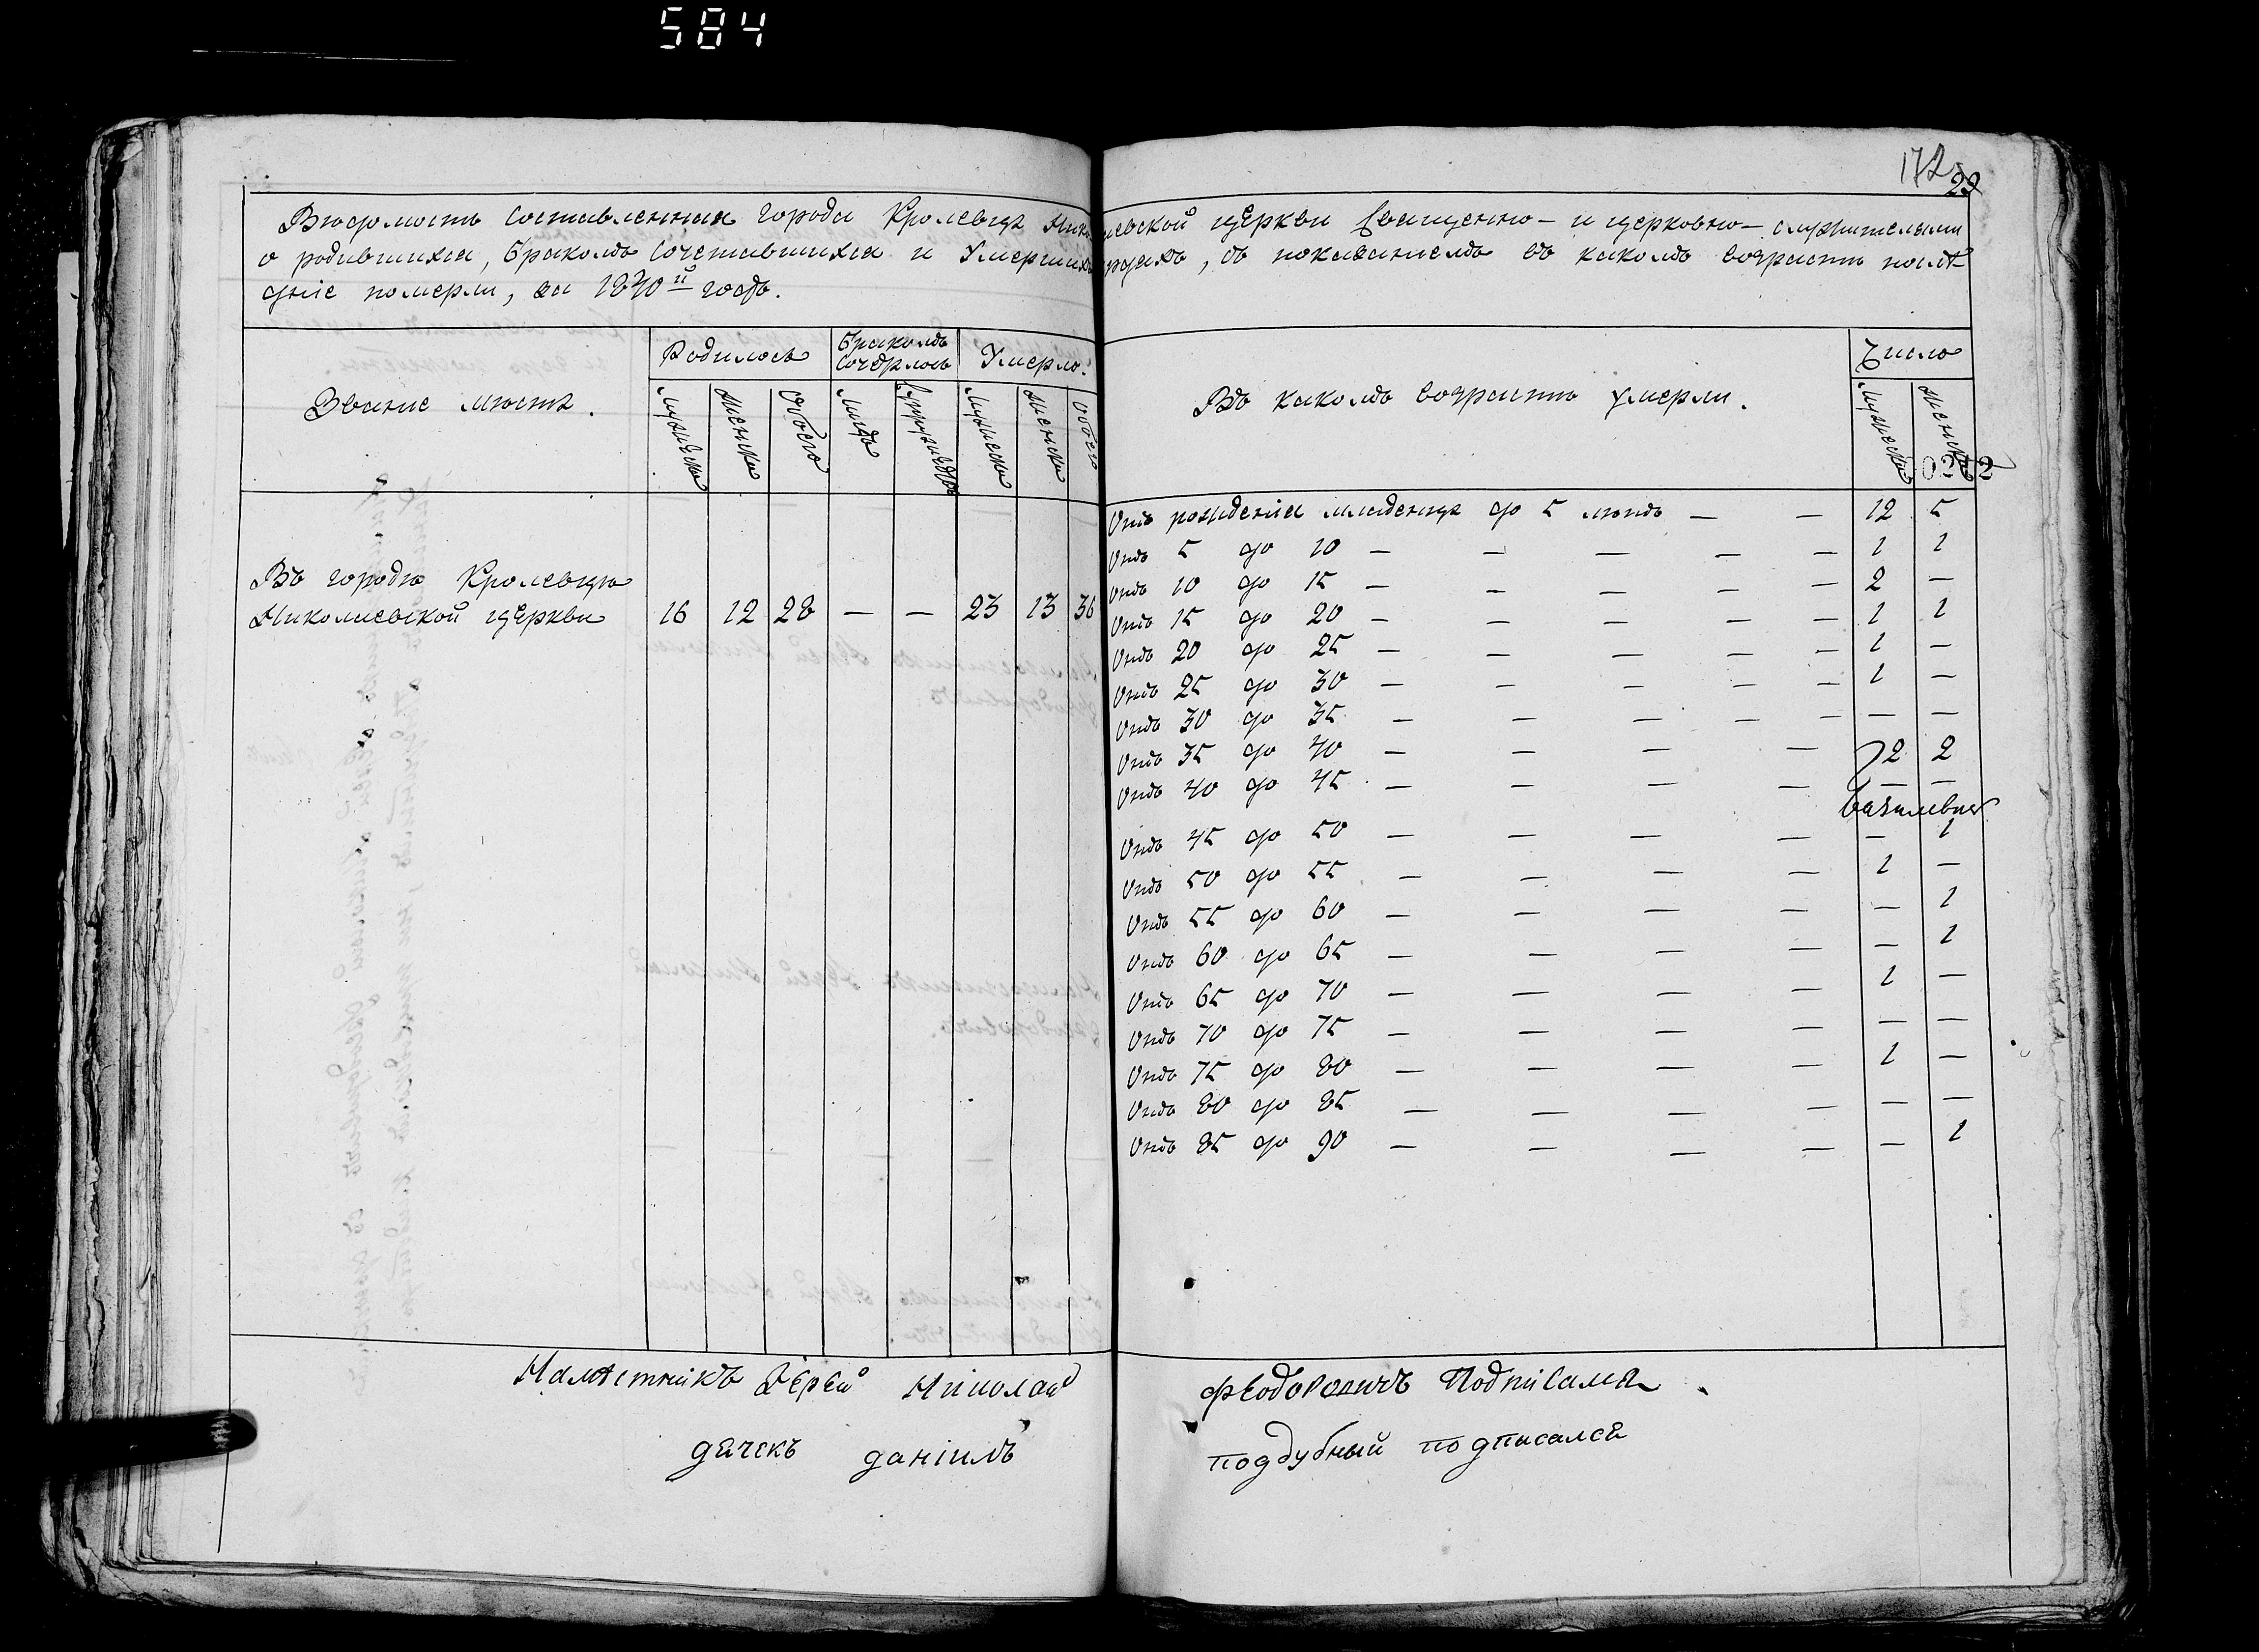 584
172
29
Вѣдомость составленная города Кролевца Николаевской церкви священно- и церковно-служителями
о родившихся, бракомъ сочетавшихся и умершихъ
людяхъ, съ показаніемъ въ какомъ возрастѣ послѣ-
дніе померли, за 1840й годъ.
Званіе мѣста.
Родилось
Бракомъ
Умерло.
мужеска
женска
обоего
мужеска
женска
обоего
Въ какомъ возрастѣ умерли.
Число
мужеска
женска
Въ городѣ Кролевцѣ
Николаевской церкви 16 12 28 — — 23 13 36
Отъ рожденія младенца до 5 лѣтъ — — 12 5
Отъ 5 до 10 — — — — — 1 1
Отъ 10 до 15 — — — — — 2 —
Отъ 15 до 20 — — — — — 1 1
Отъ 20 до 25 — — — — — 1 —
Отъ 25 до 30 — — — — — 1 —
Отъ 30 до 35 — — — — — — —
Отъ 35 до 40 — — — — 2 2
Отъ 40 до 45 — — — — — —
Отъ 45 до 50 — — — — — 1
Отъ 50 до 55 — — — — 1 —
Отъ 55 до 60 — — — — — 1
Отъ 60 до 65 — — — — — 1
Отъ 65 до 70 — — — — 1 —
Отъ 70 до 75 — — — — — —
Отъ 75 до 80 — — — — 1 —
Отъ 80 до 85 — — — — — —
Отъ 85 до 90 — — — — — 1
Намѣстникъ Іерей Николай Феодоровичъ Подписался
дячекъ даніилъ поддубный подписался